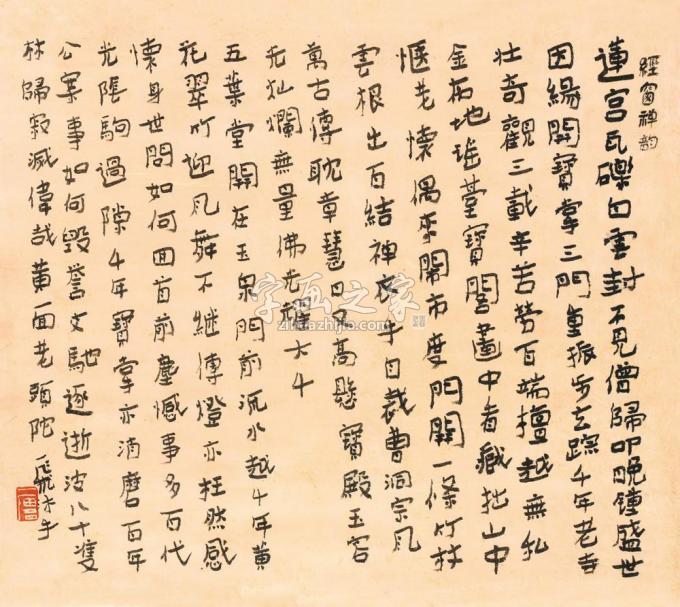 經窗禪韵
蓮宮瓦礫白雲封不見僧歸叩晚鐘盛世
因緣開寶掌三門重振步玄蹤千年老寺
壯奇觀三載辛苦勞百端檀越無私
金布地瑤臺寶閣畫中看藏拙山中
愜老懷偶來鬧市度門開一條竹杖
雲根出百結神衣手自裁曹洞宗風
萬古傳耽章慧日又高懸寶殿玉容
光灿爛無量佛光耀大千
五葉堂開在玉泉門前沉水越千年黄
花翠竹迎风舞不继傳燈亦枉然感
懷身世問如何回首前塵憾事多百代
光陰駒過隙千年寶掌亦消磨百年
公案事如何毀譽文馳逐逝波八十隻
林歸寂滅偉哉黄面老頭陀
字画之家
zihuazhijia.com